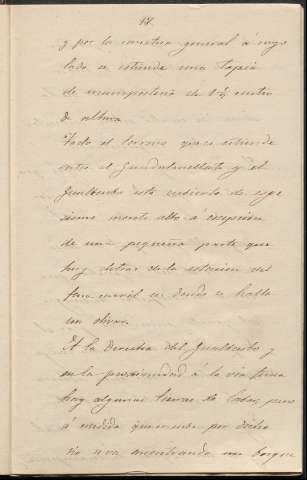 17.
y por la carretera general á cuyo
lado se estiende una tapia
de mamposteria de 1½ metro
de altura.
Todo el terreno que se estiende
entre el Guadalmellato y el
Gualbarbo está cubierto de espe
sisimo monte alto á escepcion
de una pequeña parte que
hay detras de la estacion del
ferro carril en donde se halla
un olivar.
A la derecha del y
en la proximidad á la via ferrea
hay algunas tierras de labor, pero
á medida que se sube por dicho
rio se va encontrando un bosque